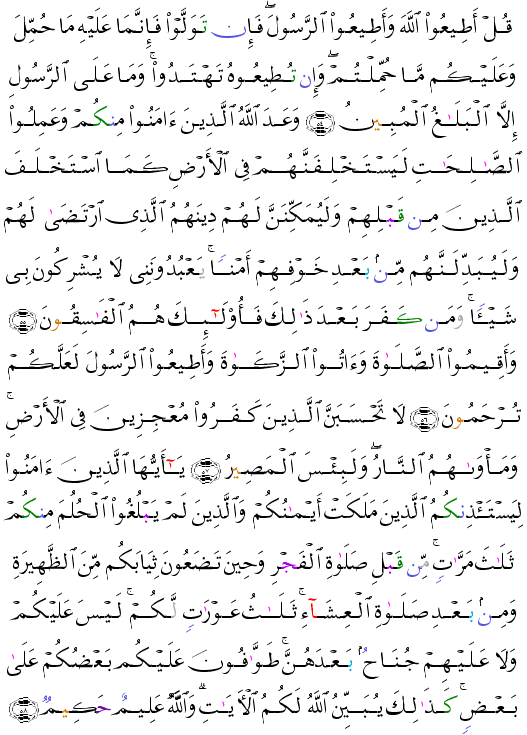 قُلْ أَطِيعُوا۟ ٱللَّهَ وَأَطِيعُوا۟ ٱلرَّسُولَ ۖ فَإِن تَوَلَّوْا۟ فَإِنَّمَا عَلَيْهِ مَا حُمِّلَ
وَعَلَيْكُم مَّا حُمِّلْتُمْ ۖ وَإِن تُطِيعُوهُ تَهْتَدُوا۟ ۚ وَمَا عَلَى ٱلرَّسُولِ
إِلَّا ٱلْبَلَـٰغُ ٱلْمُبِينُ ﴿٥٤﴾ وَعَدَ ٱللَّهُ ٱلَّذِينَ ءَامَنُوا۟ مِنكُمْ وَعَمِلُوا۟
ٱلصَّـٰلِحَـٰتِ لَيَسْتَخْلِفَنَّهُمْ فِى ٱلْأَرْضِ كَمَا ٱسْتَخْلَفَ
ٱلَّذِينَ مِن قَبْلِهِمْ وَلَيُمَكِّنَنَّ لَهُمْ دِينَهُمُ ٱلَّذِى ٱرْتَضَىٰ لَهُمْ
وَلَيُبَدِّلَنَّهُم مِّنۢ بَعْدِ خَوْفِهِمْ أَمْنًا ۚ يَعْبُدُونَنِى لَا يُشْرِكُونَ بِى
شَيْـًٔا ۚ وَمَن كَفَرَ بَعْدَ ذَٰلِكَ فَأُو۟لَـٰٓئِكَ هُمُ ٱلْفَـٰسِقُونَ ﴿٥٥﴾
وَأَقِيمُوا۟ ٱلصَّلَوٰةَ وَءَاتُوا۟ ٱلزَّكَوٰةَ وَأَطِيعُوا۟ ٱلرَّسُولَ لَعَلَّكُمْ
تُرْحَمُونَ ﴿٥٦﴾ لَا تَحْسَبَنَّ ٱلَّذِينَ كَفَرُوا۟ مُعْجِزِينَ فِى ٱلْأَرْضِ ۚ
وَمَأْوَىٰهُمُ ٱلنَّارُ ۖ وَلَبِئْسَ ٱلْمَصِيرُ ﴿٥٧﴾ يَـٰٓأَيُّهَا ٱلَّذِينَ ءَامَنُوا۟
لِيَسْتَـْٔذِنكُمُ ٱلَّذِينَ مَلَكَتْ أَيْمَـٰنُكُمْ وَٱلَّذِينَ لَمْ يَبْلُغُوا۟ ٱلْحُلُمَ مِنكُمْ
ثَلَـٰثَ مَرَّٰتٍ ۚ مِّن قَبْلِ صَلَوٰةِ ٱلْفَجْرِ وَحِينَ تَضَعُونَ ثِيَابَكُم مِّنَ ٱلظَّهِيرَةِ
وَمِنۢ بَعْدِ صَلَوٰةِ ٱلْعِشَآءِ ۚ ثَلَـٰثُ عَوْرَٰتٍ لَّكُمْ ۚ لَيْسَ عَلَيْكُمْ
وَلَا عَلَيْهِمْ جُنَاحٌۢ بَعْدَهُنَّ ۚ طَوَّٰفُونَ عَلَيْكُم بَعْضُكُمْ عَلَىٰ
بَعْضٍ ۚ كَذَٰلِكَ يُبَيِّنُ ٱللَّهُ لَكُمُ ٱلْـَٔايَـٰتِ ۗ وَٱللَّهُ عَلِيمٌ حَكِيمٌ ﴿٥٨﴾